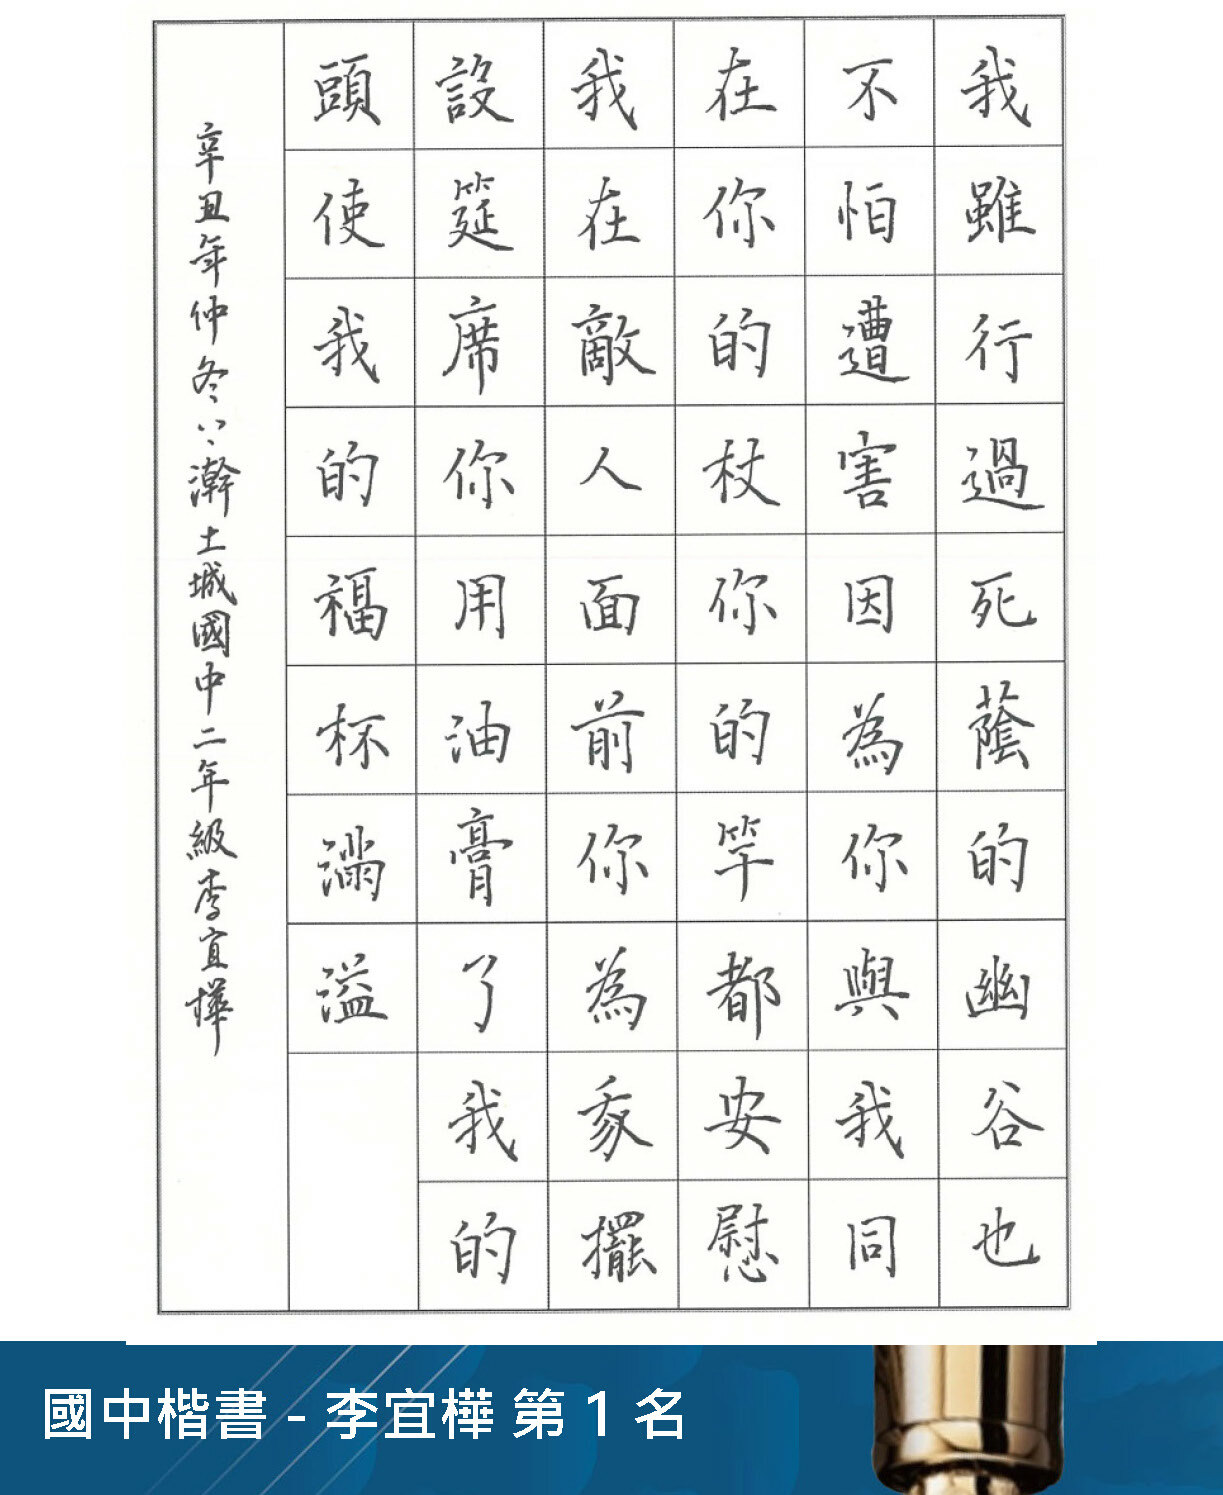 我雖行過死蔭的幽谷也
不怕遭害因為你與我同
在你的杖你的竿都安慰
我在敵人面前你為我擺
設筵席你用油膏了我的
頭使我的福杯滿溢
辛丑年仲冬 瀚土城國中二年級李宜樺
國中楷書 - 李宜樺 第 1 名